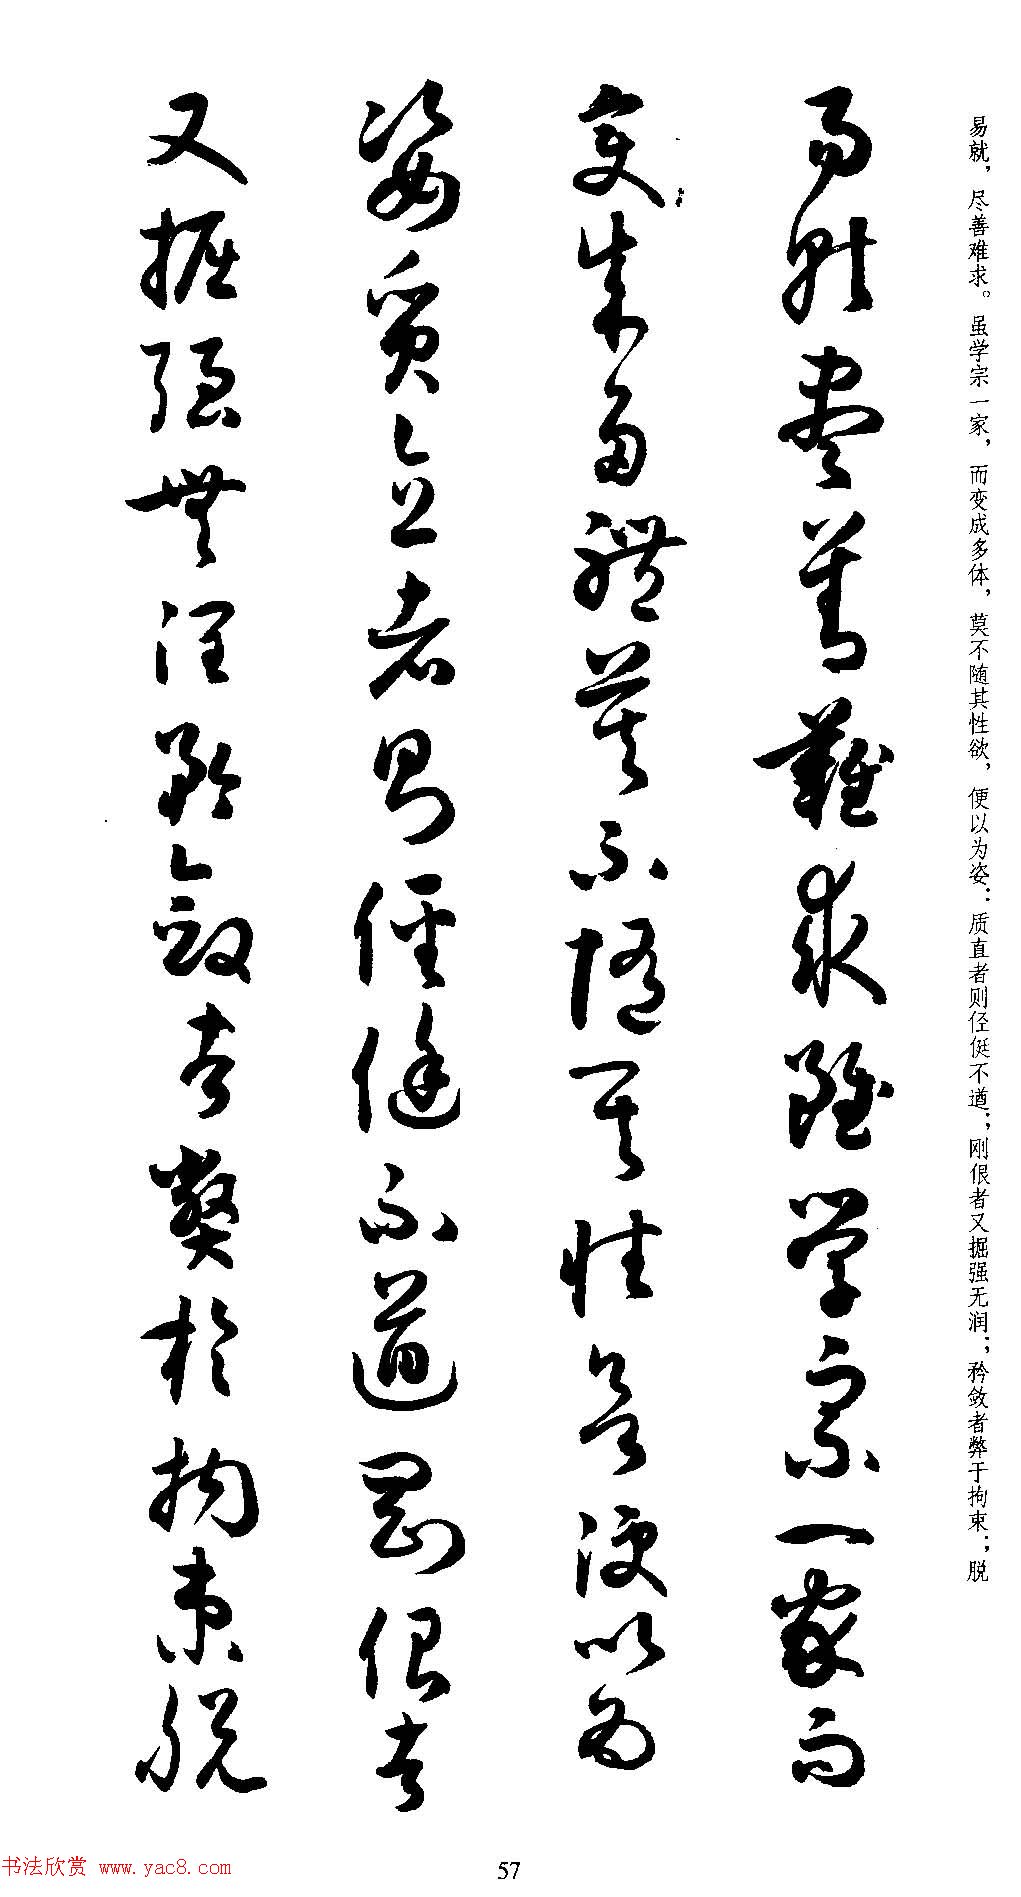 易就，尽善难求。虽学宗一家，而变成多体，莫不随其性欲，便以为姿：质直者则径侹不遒；刚佷者又掘强无润；矜敛者弊于拘束；脱
易就盡善難求雖學宗一家而
變成多體莫不隨其性欲便以為
姿質直者則徑侹不遒剛佷者
又掘强無潤矜斂者弊於拘束脱
书法欣赏 www.yac8.com
57